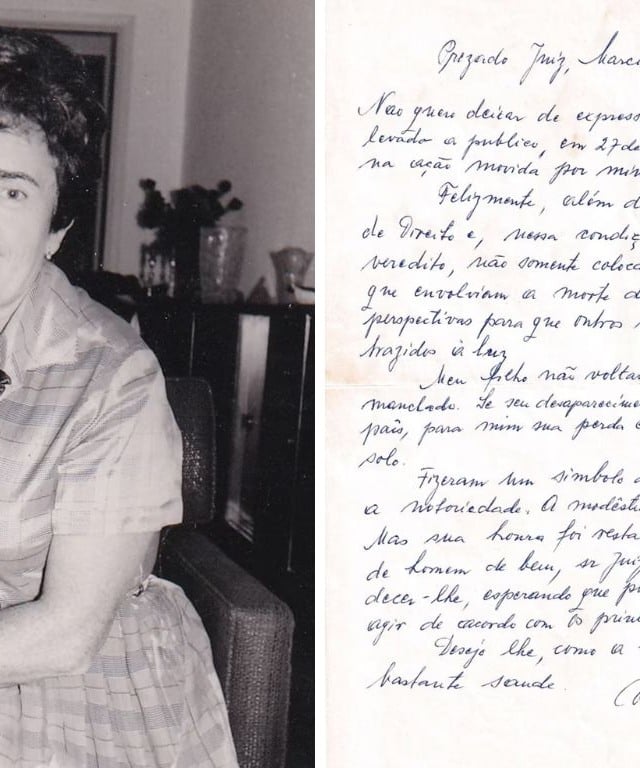 Prezado Juiz, Marci
Nao quero deixar de express
levado a publico, em 27 de
na ação movida por mim
Felizmente, além d
de Direito e, nessa condiç
veredito, não somente coloco
que envolviam a morte d
perspectivas para que outros
trazidos à luz
Meu filho não voltar
manchado. Se seu desaparecime
país, para mim sua perda é
solo.
Fizeram um simbolo d
a notoriedade. A modést
Mas sua honra foi resta
de homem de bem, sr Juiz
decer-lhe, esperando que p
agir de cacordo com os prin
Desejo lhe, como a
bastante saude.